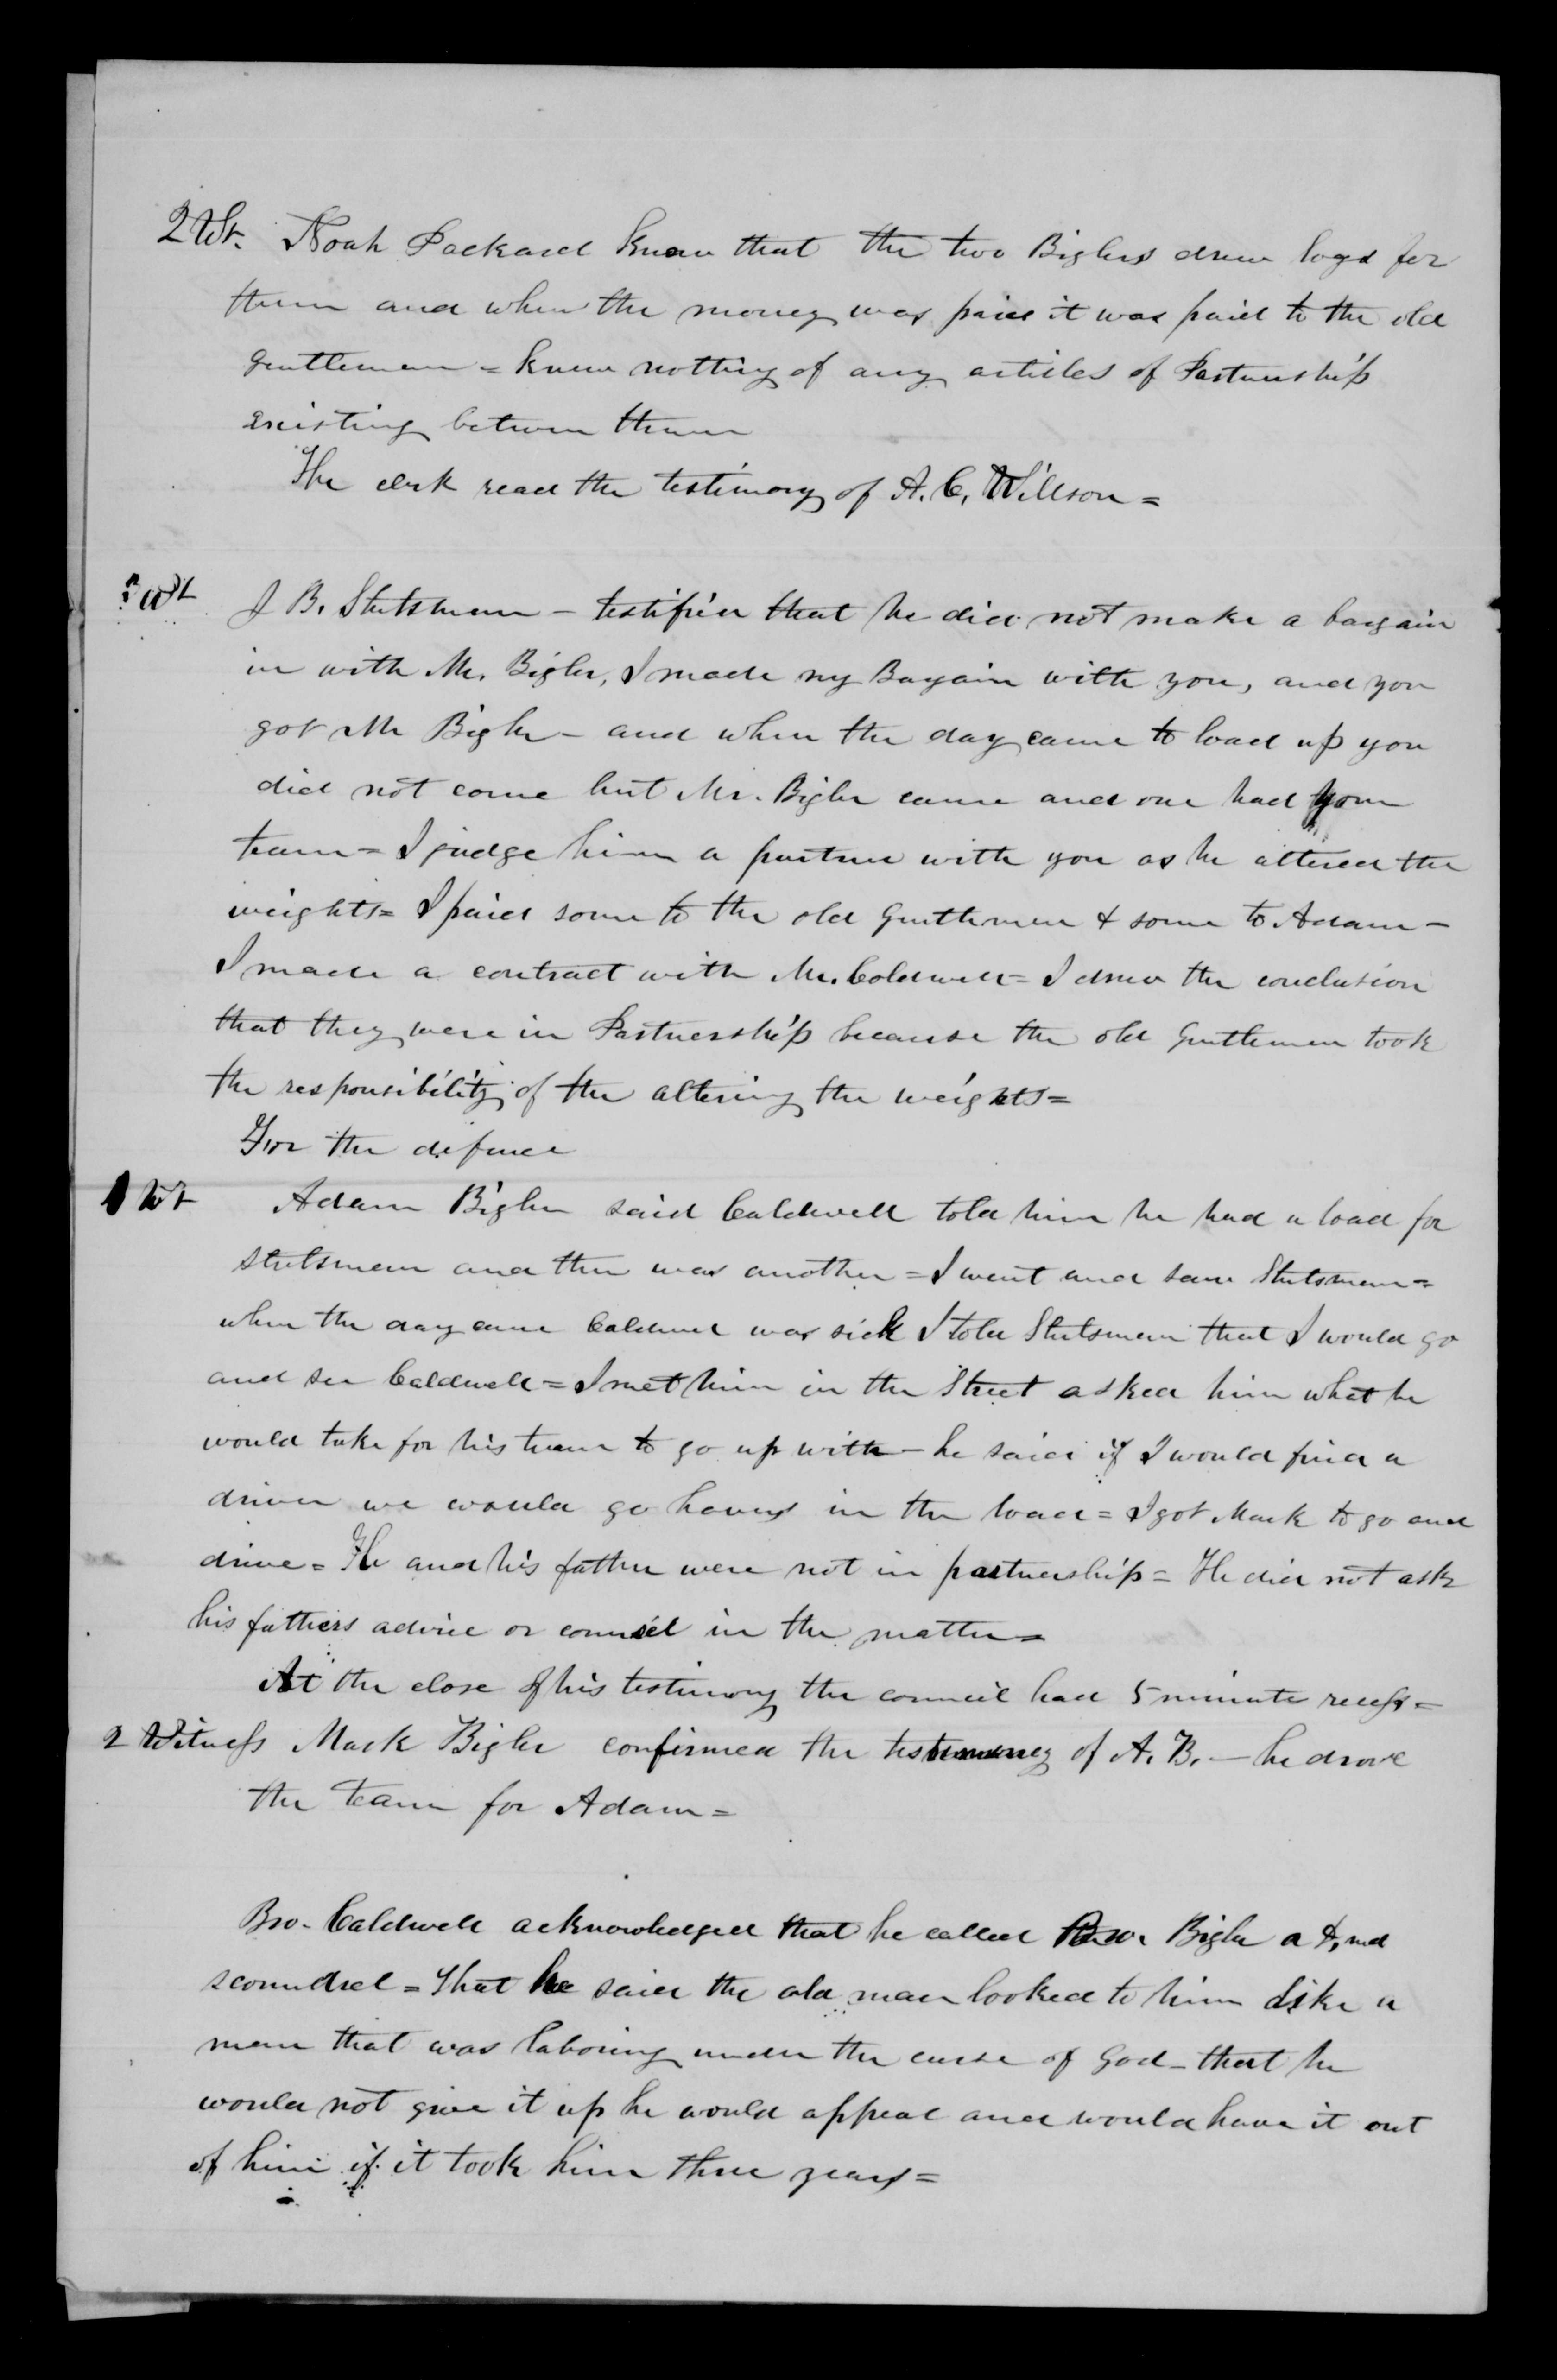 2 Wt. Noah Packard knew that the two Biglers drew logs for
them and when the money was paid it was paid to the old
gentleman = knew nothing of any articles of Partnership
existing between them
The clerk read the testimony of A. C. Willson =
Wt J B. Stutsman - testified that he did not make a bargain
in with Mr. Bigler, I made my Bagain with you, and you
got Mr Bigler - and when the day came to load up you
did not come but Mr. Bigler came and one had your
team = I judge him a partner with you as he altered the
weights = I paid some to the old Gentleman & some to Adam -
I made a contract with Mr. Coldwell = I drew the conclusion
that they were in Partnership because the old Gentleman took
the responsibility of the altering the weights =
For the defence
1 Wt Adam Bigler said Caldwell told him he had a load for
Stutsman and there was another = I went and saw Stutsman =
when the day came Caldwell was sick I told Stutsman that I would go
and see Caldwell = I met him in the Street asked him what he
would take for his team to go up with - he said if I would find a
driver we would go halves in the load = I got Mark to go and
drive = He and his father were not in partnership = He did not ask
his fathers advice or counsel in the matter =
At the close of his testimony the council had 5 minute recess =
2 Witness Mark Bigler confirmed the testimony of A. B. - he drove
the team for Adam =
Bro. Caldwell acknowledged that he called Bro. Bigler a
scoundrel = That he said the old man looked to him like a
man that was laboring under the curse of God - that he
would not give it up he would appeal and would have it out
of him if it took him three years =